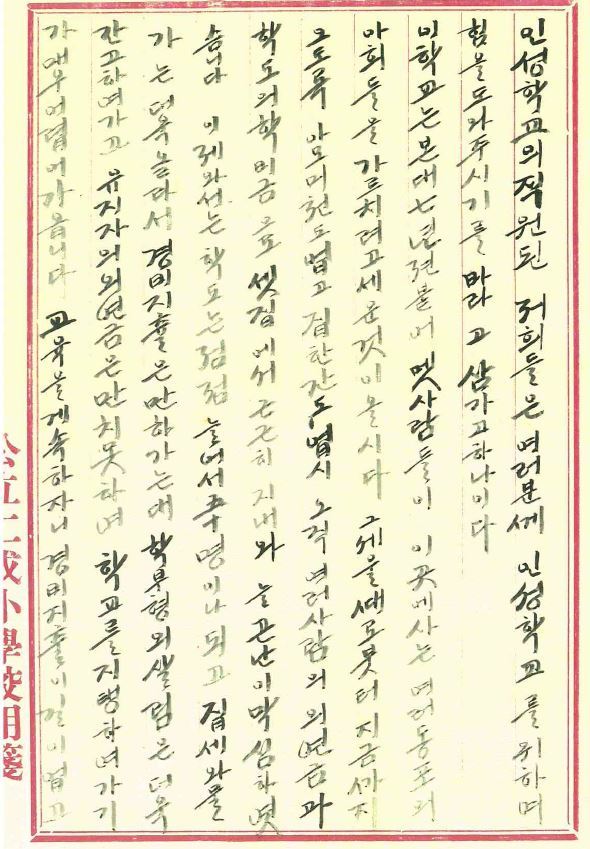 인성학교의 직원된 저희들은 여러분께 인성학교를 위하며
힘을 도와주시기를 바라고 삼가 고하나이다
이 학교는 본대 七년 전붙어 멧사람들이 이곳에 사는 여러 동포의
아희들을 가르치려고 세운 것이올시다 그 세울 때로붓터 지금까지
오도록 아모 미천도 업고 집 한 간도 업시 오직 여러 사람의 의연금과
학도의 학비금으로 셋집에서 근근히 지내와 늘 곤난이 막심하엿
습니다 이제와서는 학도는 점점 늘어서 五十명이나 되고 집세와 물
가는 더욱 놀라서 경비지출은 만하가는대 학부형의 살림은 더욱
간고하여가고 유지자의 의연금은 만치 못하며 학교를 지탱하여가기
가 매우 어렵어가옵니다 교육을 게속하자니 경비지출이 길이 업고
公立仁成小學校用箋